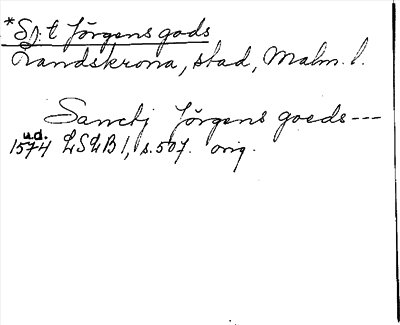 *S:t Jörgens gods
Landskrona, stad, Malm. l.
Sanctj Jörgens goeds---
u.d.
1574 LSLB 1, s.507. orig.